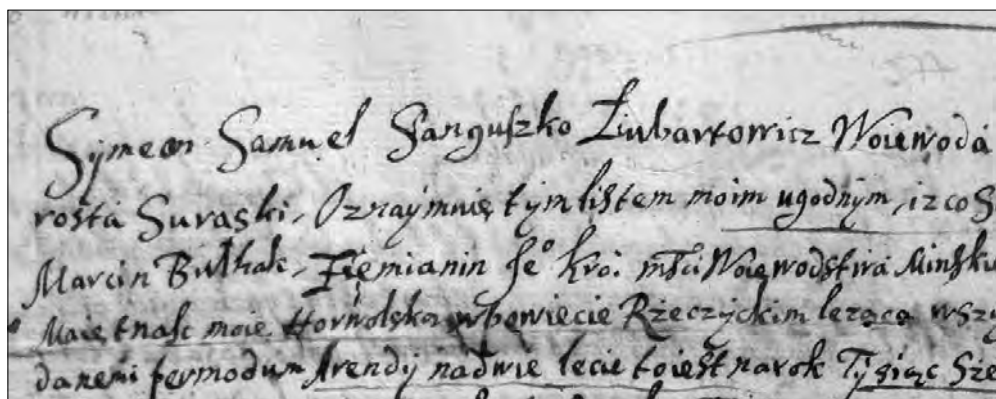 Symeon Samuel Sanguszko Liubartowicz Woiewoda
rosta Suraski, Oznaymuię tym listem moim ugodnym, iż co S
Marcin Bułhak, Ziemianin Je° Kro: Mści Woiewodstwa Minski
Maiętnasc moię Horwolską w powiecie Rzeczyckim lezącą wszy
danemi per modum Arendy na dwie lecie to iest na rok Tysiąc Sze